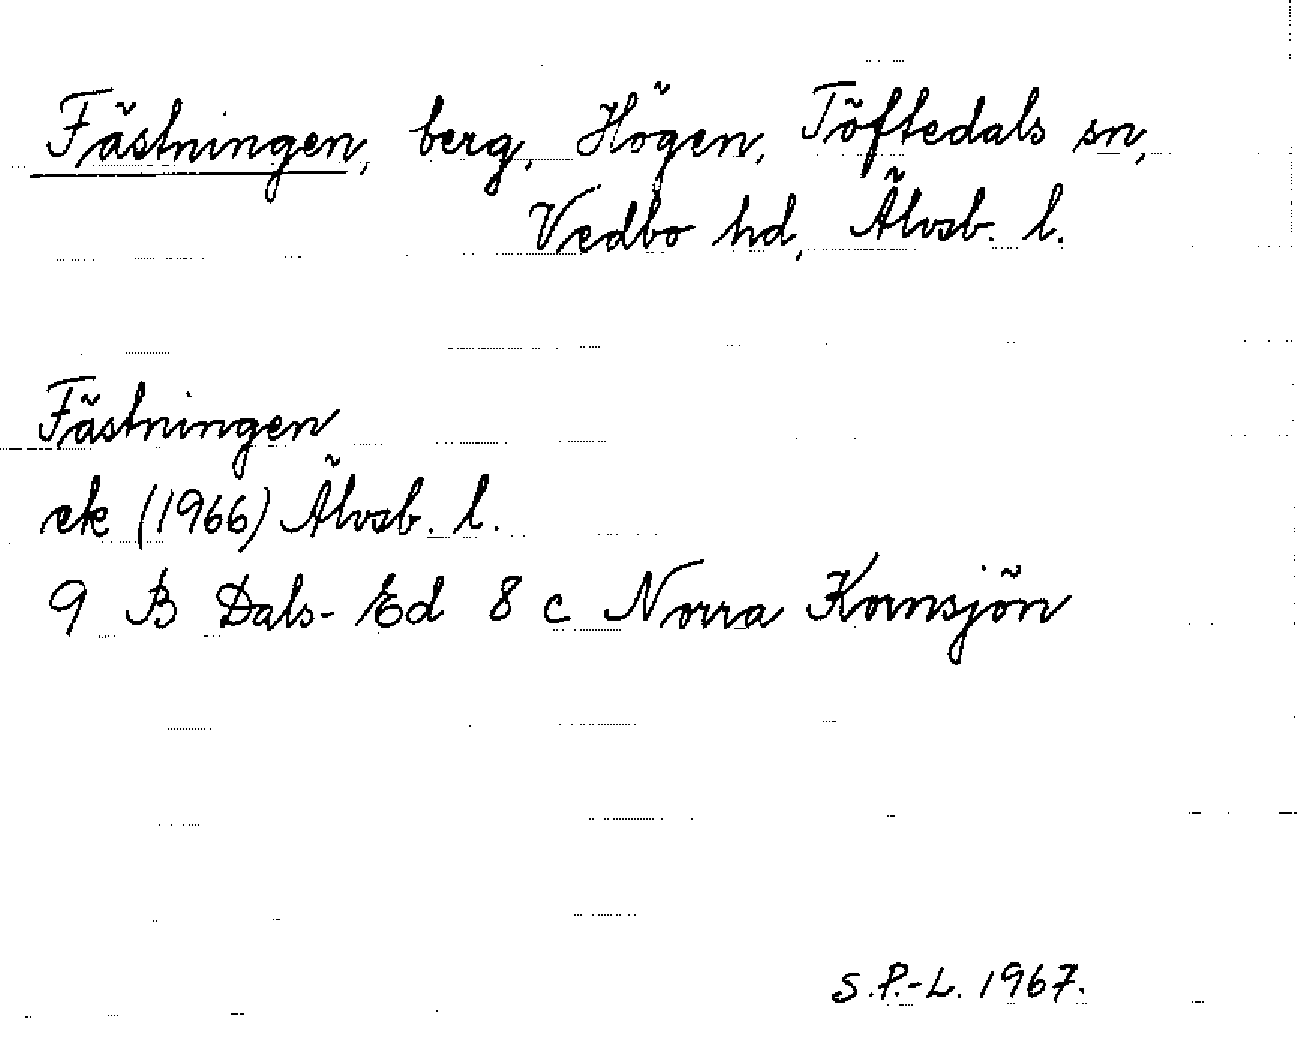 Fästningen, berg, Högen, Töftedals sn,
Vedbo hd, Älvsb. l.
Fästningen
ek (1966) Älvsb. l.
9 B Dals-Ed 8 c Norra Kornsjön
S.P.-L. 1967.